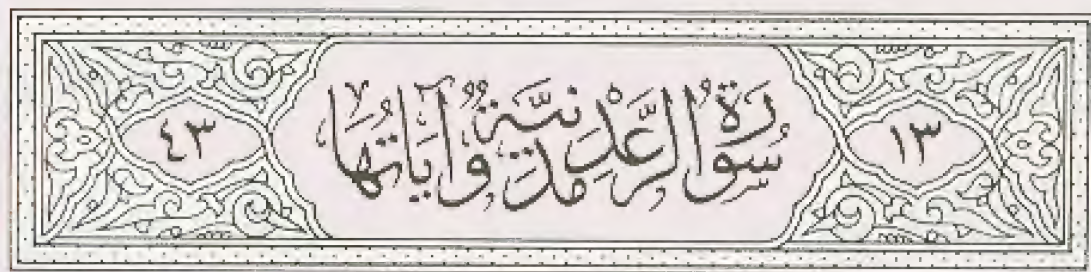 ١٣ سُورَةُ الرَّعْدِ مَدَنِيَّةٌ وَآيَاتُهَا ٤٣